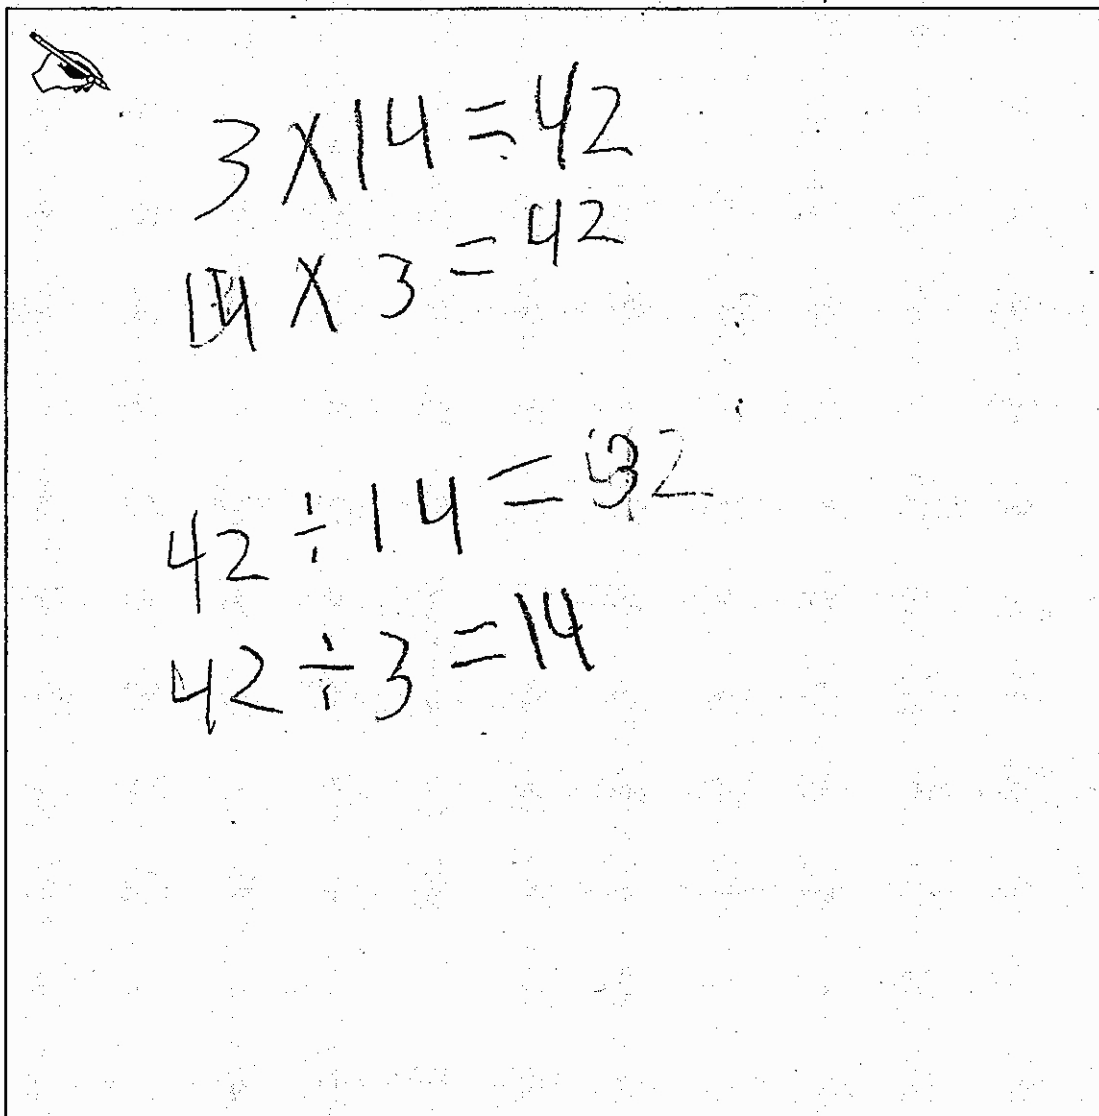 3 X 14 = 42
14 X 3 = 42
42 ÷ 14 = 3
42 ÷ 3 = 14